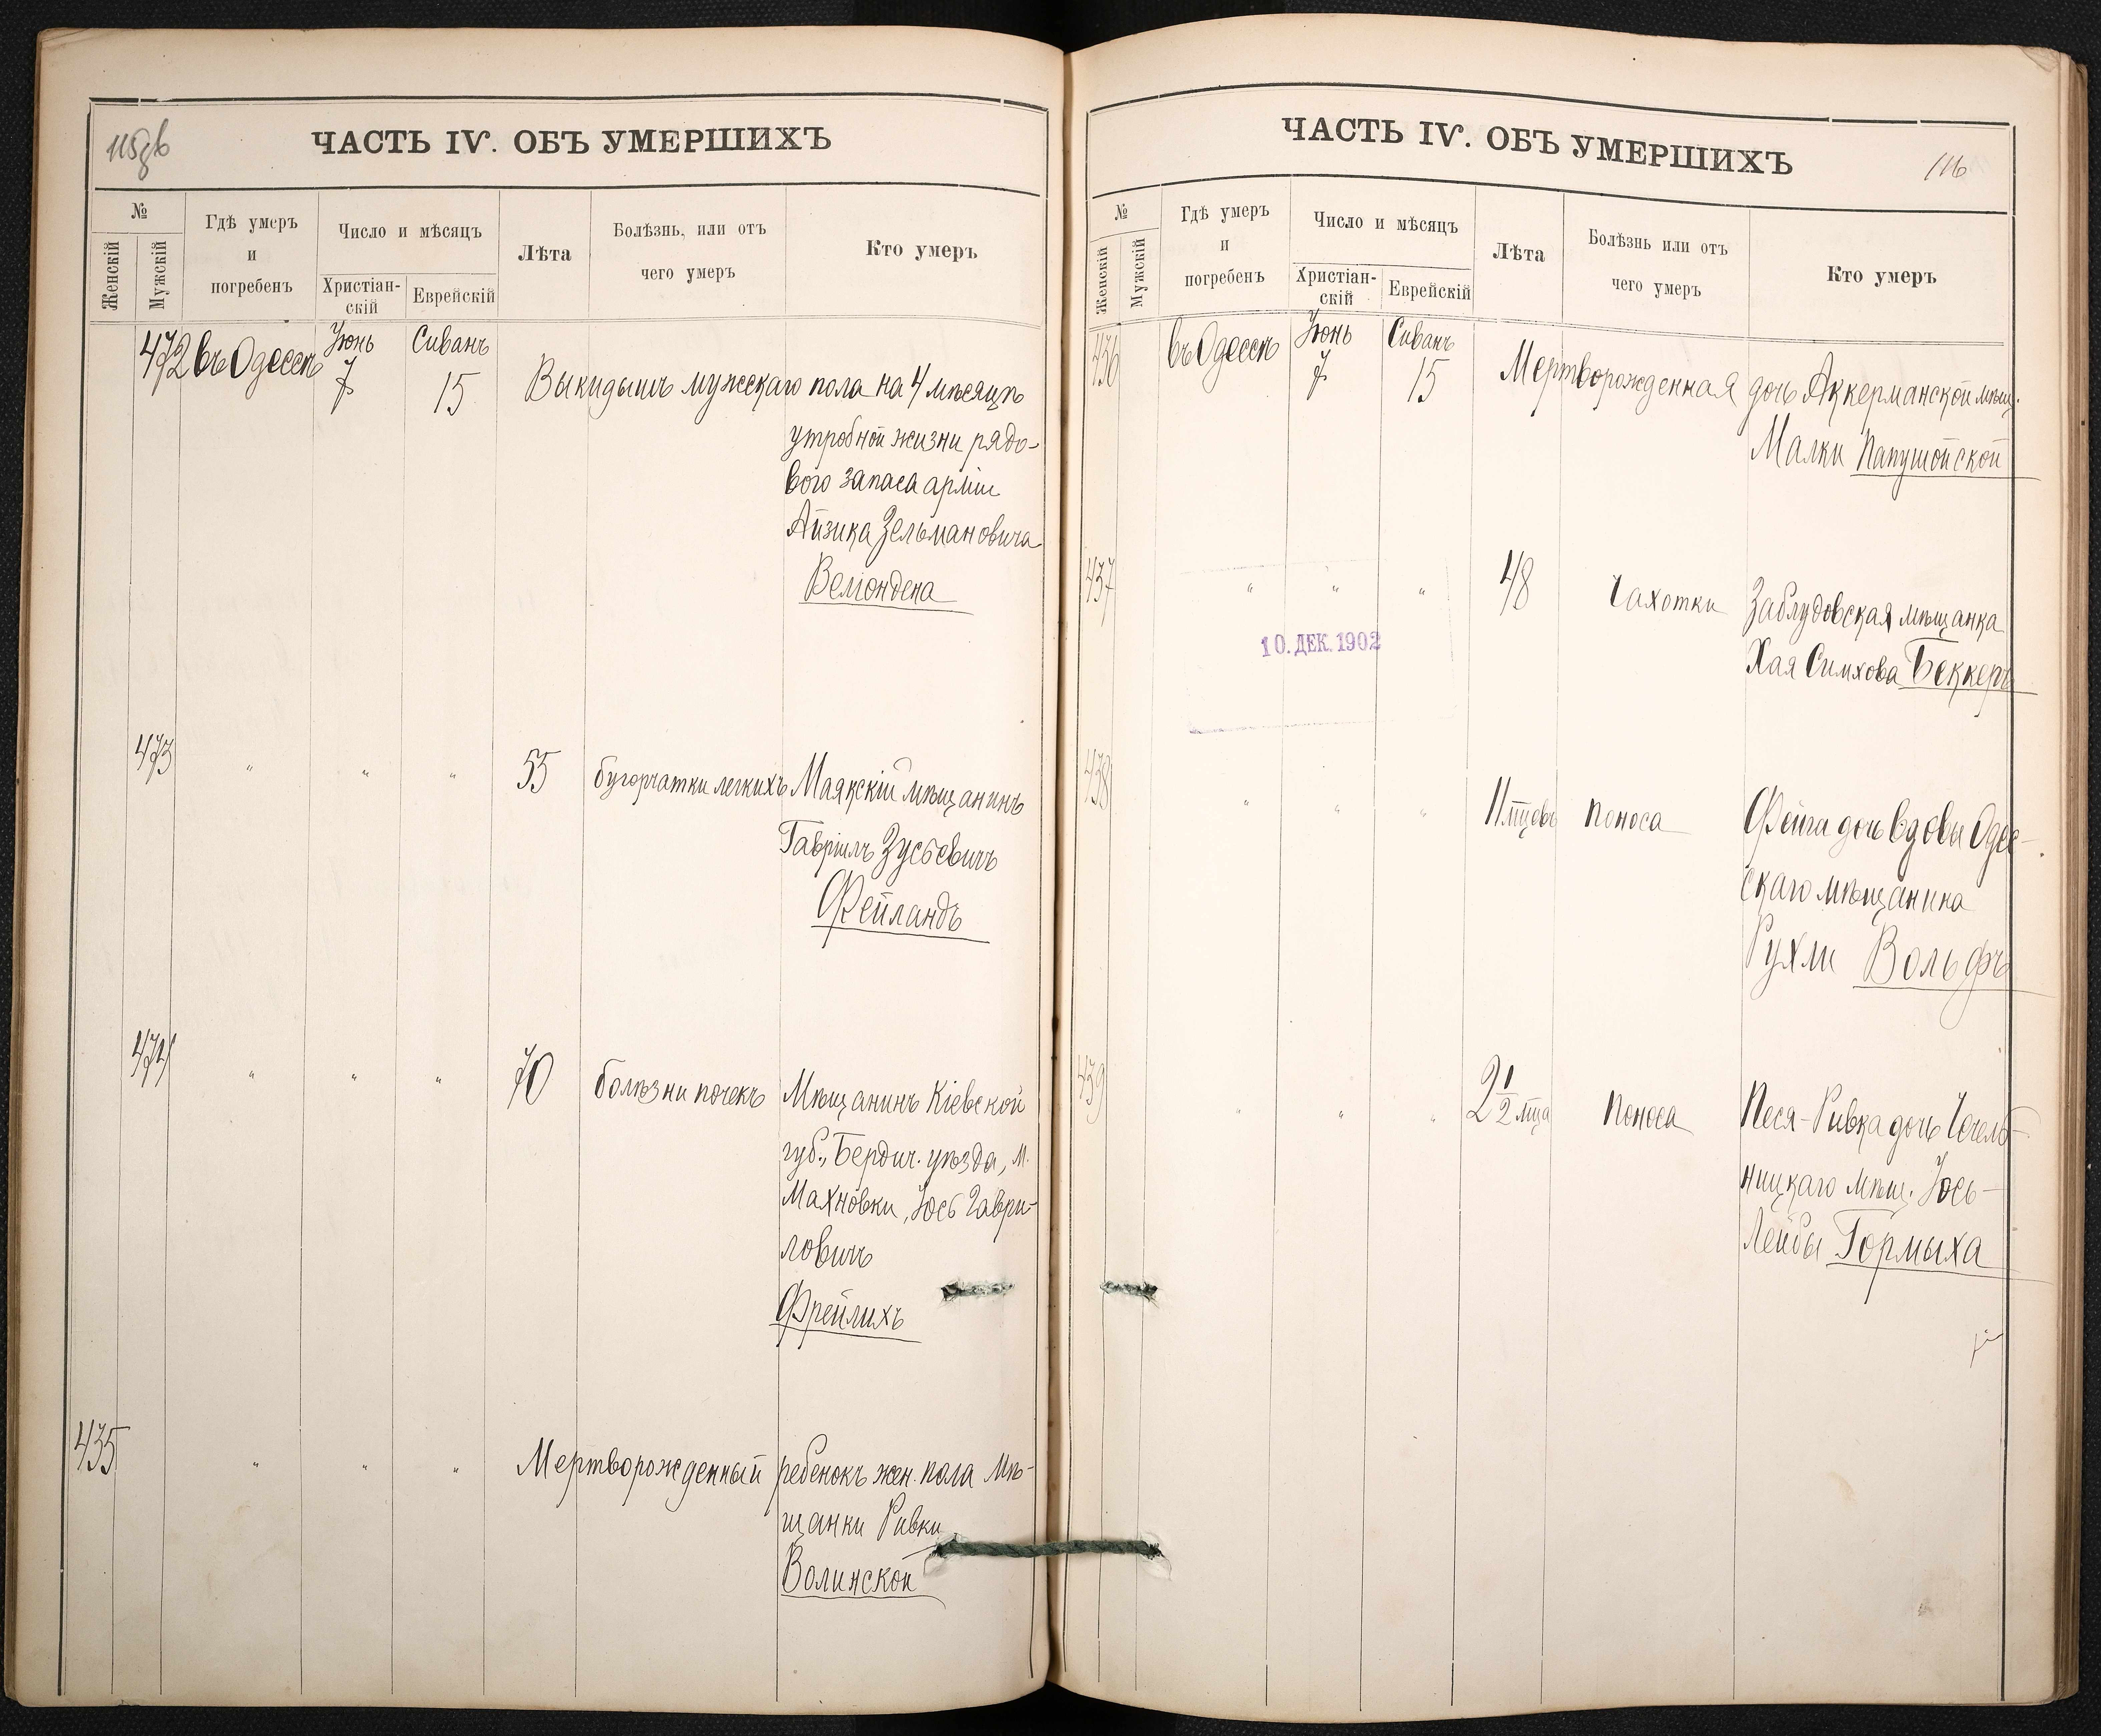 115об
ЧАСТЬ IV. ОБЪ УМЕРШИХЪ
№
Женскій
Мужскій
Гдѣ умеръ
и
погребенъ
Число и мѣсяцъ
Христіан-
скій
Еврейскій
Лѣта
Болѣзнь, или отъ
чего умеръ
Кто умеръ
472 въ Одессѣ Іюнь Сиванъ
7 15 Выкидышъ мужскаго пола на 4 мѣсяцѣ
утробной жизни рядо-
вого запаса арміи
Айзика Зельмановича
473 " " " 55 бугорчатки легкихъ Маякскій мѣщанинъ
Гавріилъ Зусьевичъ
Фейландъ
474 " " " 70 болѣзни почекъ Мѣщанинъ Кіевской
губ., Бердич. уѣзда, м.
Махновки, Іось Гаври-
ловичъ
Фрейлихъ
435 " " " Мертворожденный ребенокъ жен. пола мѣ-
щанки Ривки
Волинской
ЧАСТЬ IV. ОБЪ УМЕРШИХЪ
116
№
Женскій
Мужскій
Гдѣ умеръ
и
погребенъ
Число и мѣсяцъ
Христіан-
скій
Еврейскій
Лѣта
Болѣзнь или отъ
чего умеръ
Кто умеръ
436 въ Одессѣ Іюнь Сиванъ
7 15 Мертворожденная дочь Аккерманской мѣщ.
Малки Папушойской
437 " " " 48 Чахотки Заблудовская мѣщанка
Хая Симхова Беккеръ
10. ДЕК. 1902
438 " " " 11 мцевъ поноса Фейга дочь вдовы Одес-
скаго мѣщанина
Рухли Вольфъ
439 " " " 2 1/2 мца поноса Песя-Ривка дочь Чечель-
ницкаго мѣщ. Іось-
Лейбы Гормыха